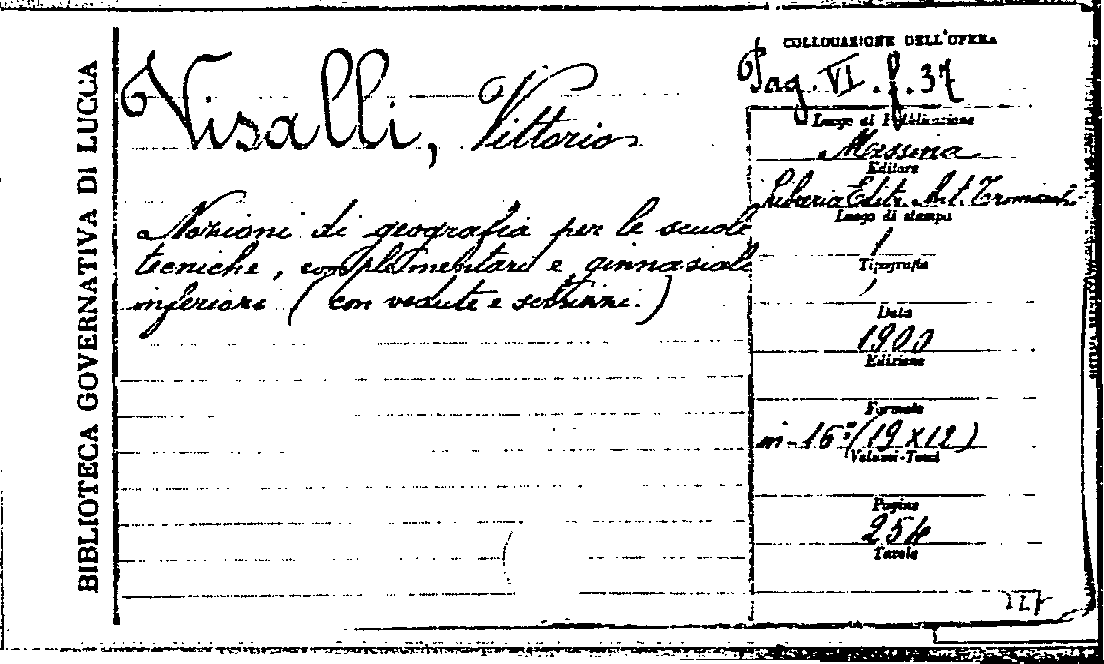 BIBLIOTECA GOVERNATIVA DI LUCCA
Visalli, Vittorio
Nozioni di geografia per le scuole
tecniche, complementari e ginnasiali
inferiori (con vedute e schizzi.)
COLLOCAZIONE DELL'OPERA
Pag. VI. f. 37
Luogo di Pubblicazione
Messina
Editore
Libreria Editr. Ant. Trimarchi
Luogo di stampa
Tipografia
Data
1900
Edizione
Formato
in-16° (19 x 12)
Volumi-Tomi
Pagine
254
Tavole